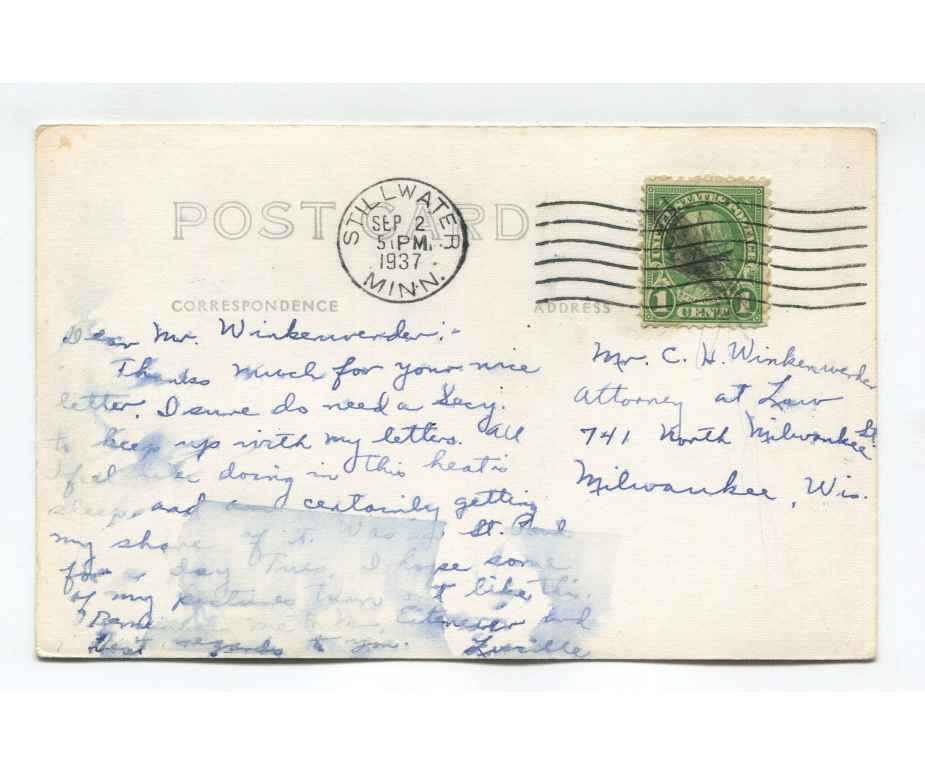 POST CARD
STILLWATER
SEP 2
5 PM
1937
MINN.
UNITED STATES POSTAGE
1 CENT 1
CORRESPONDENCE
ADDRESS
Dear Mr. Winkenwerder:-
Thanks much for your nice
letter. I sure do need a Secy.
to keep up with my letters. All
I feel like doing in this heat is
sleep and am certainly getting
my share of it. Was in St. Paul
for a day Tues. I hope some
of my pictures turn out like this.
Remember me to Mr. and
best regards to you. Lucille
Mr. C. H. Winkenwerder
Attorney at Law
741 North Milwaukee St.
Milwaukee, Wis.